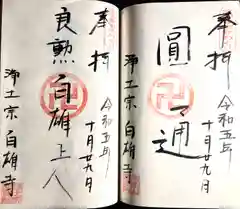 奉拝
令和五年
十月廿九日
圓通
浄土宗 白雄寺
奉拝
令和五年
十月廿九日
良勲白雄上人
浄土宗 白雄寺